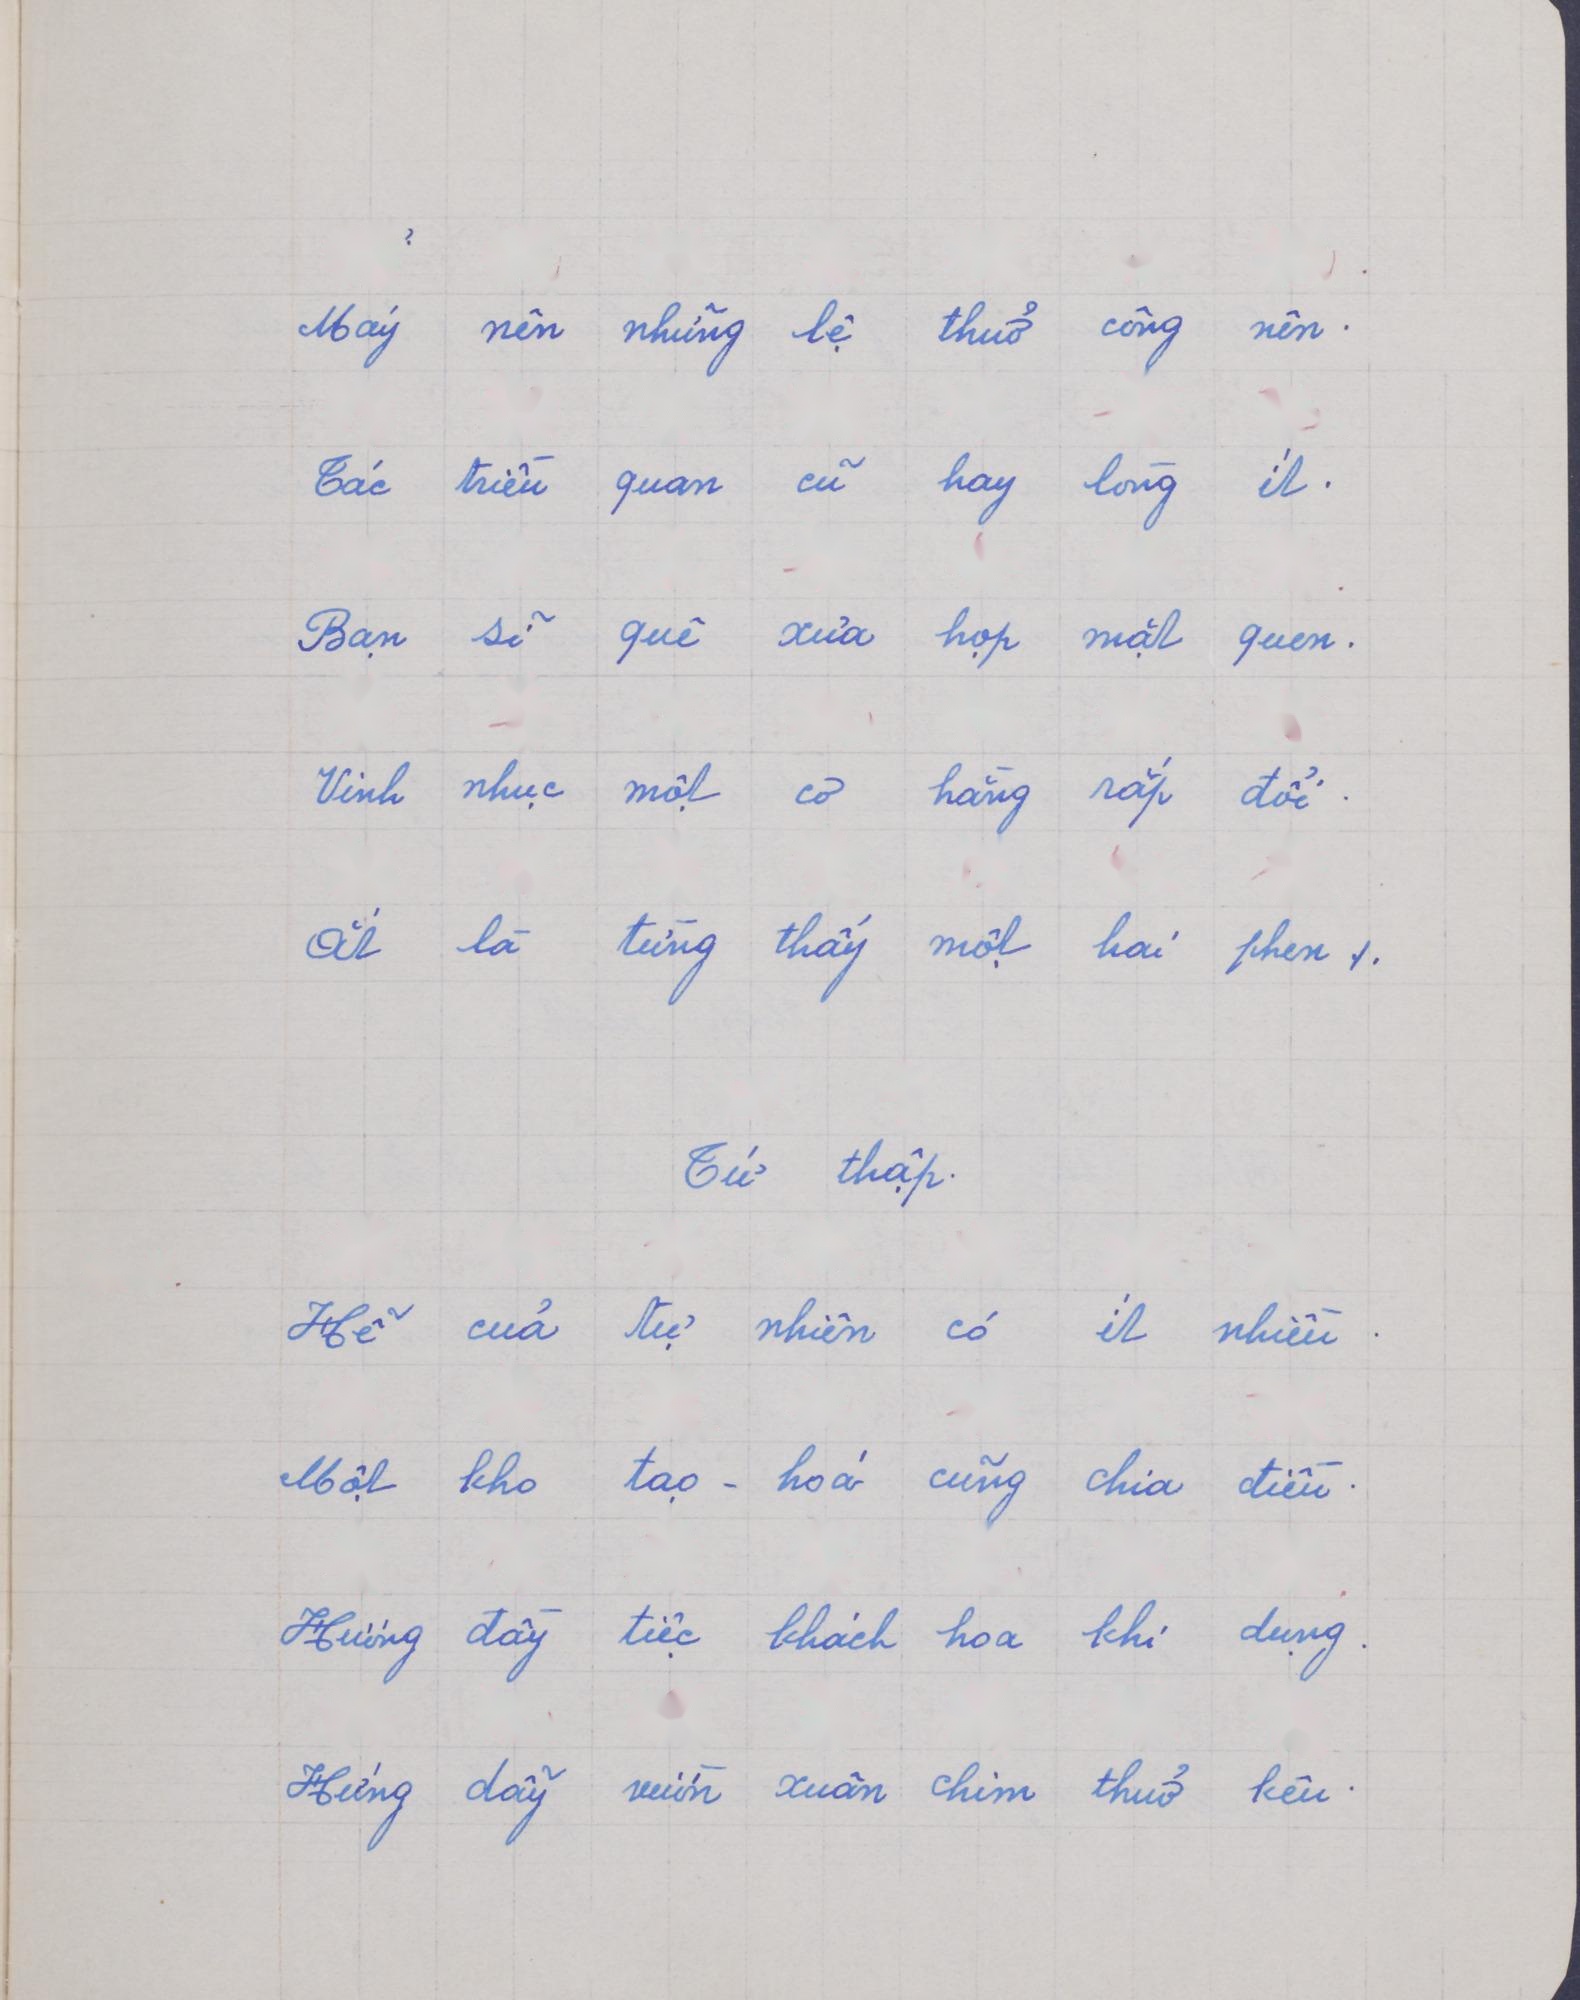 ?
Máy nên những lệ thuở công nên.
Tác triều quan cũ hay lòng ít.
Bạn sĩ quê xưa họp mặt quen.
Vinh nhục một cơ hằng rắp đổi.
Ắt là từng thấy một hai phen ./.
Tứ thập.
Hễ của tự nhiên có ít nhiều.
Một kho tạo - hoá cũng chia điều.
Hương đầy tiệc khách hoa khi dụng.
Hứng dẫy vườn xuân chim thuở kêu.